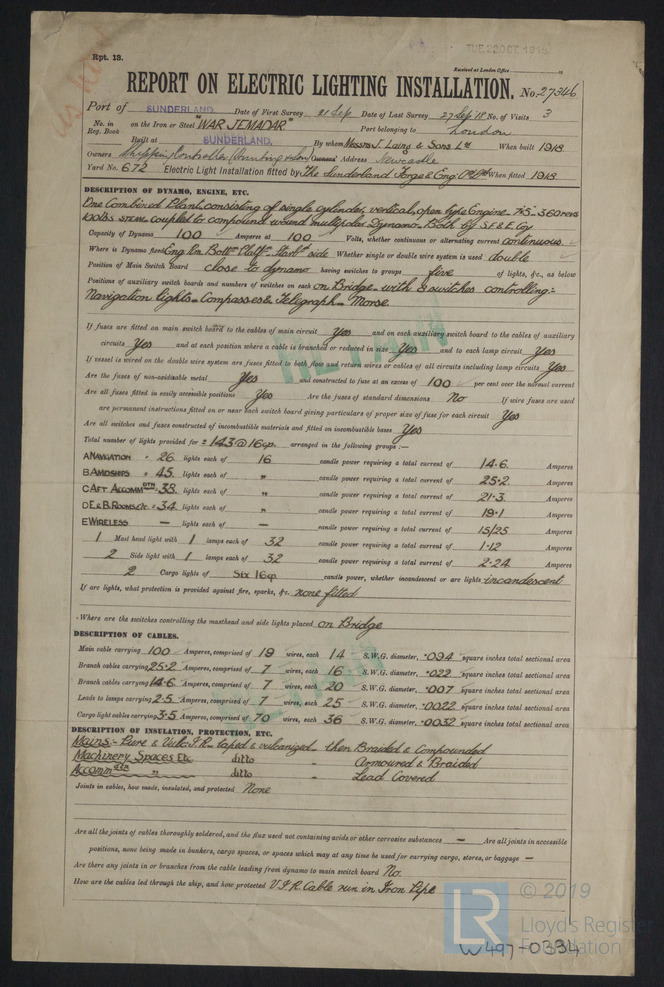 TUE. 22 OCT. 1918
Rpt. 13.
Received at London Office
REPORT ON ELECTRIC LIGHTING INSTALLATION. No. 27346
Port of SUNDERLAND Date of First Survey 21 Sep Date of Last Survey 27 Sep '18 No. of Visits 3
No. in Reg. Book on the Iron or Steel "WAR JEMADAR" Port belonging to London
Built at SUNDERLAND. By whom Messrs J. Laing & Sons Ld When built 1918
Owners Shipping Controller Owners' Address Newcastle
Yard No. 672 Electric Light Installation fitted by The Sunderland Forge & Eng. When fitted 1918
DESCRIPTION OF DYNAMO, ENGINE, ETC.
One Combined Plant, consisting of single cylinder, vertical, open type Engine 360 revs
100 lbs steam coupled to compound wound multipolar Dynamo. Both by S.F. & E. Coy
Capacity of Dynamo 100 Amperes at 100 Volts, whether continuous or alternating current continuous.
Where is Dynamo fixed Eng Rm Bottm Platfm Starbd side Whether single or double wire system is used double
Position of Main Switch Board close to dynamo having switches to groups five of lights, &c., as below
Positions of auxiliary switch boards and numbers of switches on each on Bridge with 8 switches controlling:-
Navigation lights - Compasses & Telegraph - Morse.
If fuses are fitted on main switch board to the cables of main circuit Yes and on each auxiliary switch board to the cables of auxiliary
circuits Yes and at each position where a cable is branched or reduced in size Yes and to each lamp circuit Yes
If vessel is wired on the double wire system are fuses fitted to both flow and return wires or cables of all circuits including lamp circuits Yes
Are the fuses of non-oxidisable metal Yes and constructed to fuse at an excess of 100 per cent over the normal current
Are all fuses fitted in easily accessible positions Yes Are the fuses of standard dimensions No If wire fuses are used
are permanent instructions fitted on or near each switch board giving particulars of proper size of fuse for each circuit Yes
Are all switches and fuses constructed of incombustible materials and fitted on incombustible bases Yes
Total number of lights provided for = 143 @ 16cp. arranged in the following groups :—
A NAVIGATION = 26 lights each of 16 candle power requiring a total current of 14.6. Amperes
B AMIDSHIPS = 45. lights each of " candle power requiring a total current of 25.2 Amperes
C AFT ACCOMMDTN = 38. lights each of " candle power requiring a total current of 21.3 Amperes
D E & B. ROOMS etc = 34. lights each of " candle power requiring a total current of 19.1 Amperes
E WIRELESS — lights each of — candle power requiring a total current of 15/25 Amperes
1 Mast head light with 1 lamps each of 32 candle power requiring a total current of 1.12 Amperes
2 Side light with 1 lamps each of 32 candle power requiring a total current of 2.24 Amperes
2 Cargo lights of Six 16cp candle power, whether incandescent or arc lights incandescent
If arc lights, what protection is provided against fire, sparks, &c. none fitted
Where are the switches controlling the masthead and side lights placed on Bridge
DESCRIPTION OF CABLES.
Main cable carrying 100 Amperes, comprised of 19 wires, each 14 S.W.G. diameter, .094 square inches total sectional area
Branch cables carrying 25.2 Amperes, comprised of 7 wires, each 16 S.W.G. diameter, .022 square inches total sectional area
Branch cables carrying 14.6 Amperes, comprised of 7 wires, each 20 S.W.G. diameter, .007 square inches total sectional area
Leads to lamps carrying 2.5 Amperes, comprised of 7 wires, each 25 S.W.G. diameter, .0022 square inches total sectional area
Cargo light cables carrying 3.5 Amperes, comprised of 70 wires, each 36 S.W.G. diameter, .0032 square inches total sectional area
DESCRIPTION OF INSULATION, PROTECTION, ETC.
Mains:- Pure & Vulc. I.R. - taped & vulcanized - then Braided & Compounded
Machinery Spaces Etc ditto - Armoured & Braided
Accommdtn " ditto - Lead Covered
Joints in cables, how made, insulated, and protected None
Are all the joints of cables thoroughly soldered, and the flux used not containing acids or other corrosive substances — Are all joints in accessible
positions, none being made in bunkers, cargo spaces, or spaces which may at any time be used for carrying cargo, stores, or baggage —
Are there any joints in or branches from the cable leading from dynamo to main switch board No.
How are the cables led through the ship, and how protected V.I.R. Cable run in Iron Pipe
LR
© 2019
Lloyd's Register
Foundation
W497-0334